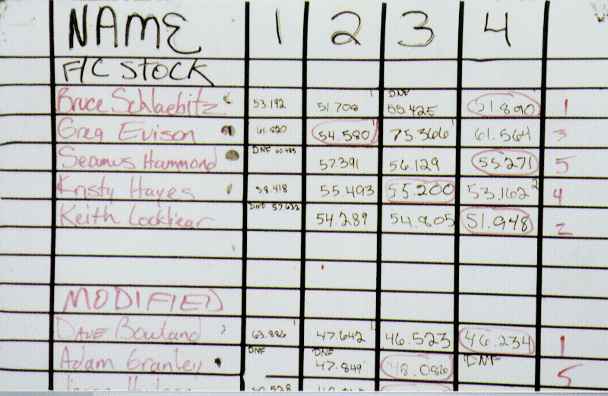 NAME 1 2 3 4
F/C STOCK
Bruce Schlaebitz 53.192 51.702 DNF 50.425 51.890 1
Greg Evison 61.820 54.580 75.366 61.564 3
Seamus Hammond DNF 57.391 56.129 55.271 5
Kristy Hayes 58.418 55.493 55.200 53.162 4
Keith Locklear DNF 54.289 54.805 51.948 2
MODIFIED
Dave Bowland 63.886 47.642 46.523 46.234 1
Adam Granley DNF DNF 47.849 48.086 DNF 5